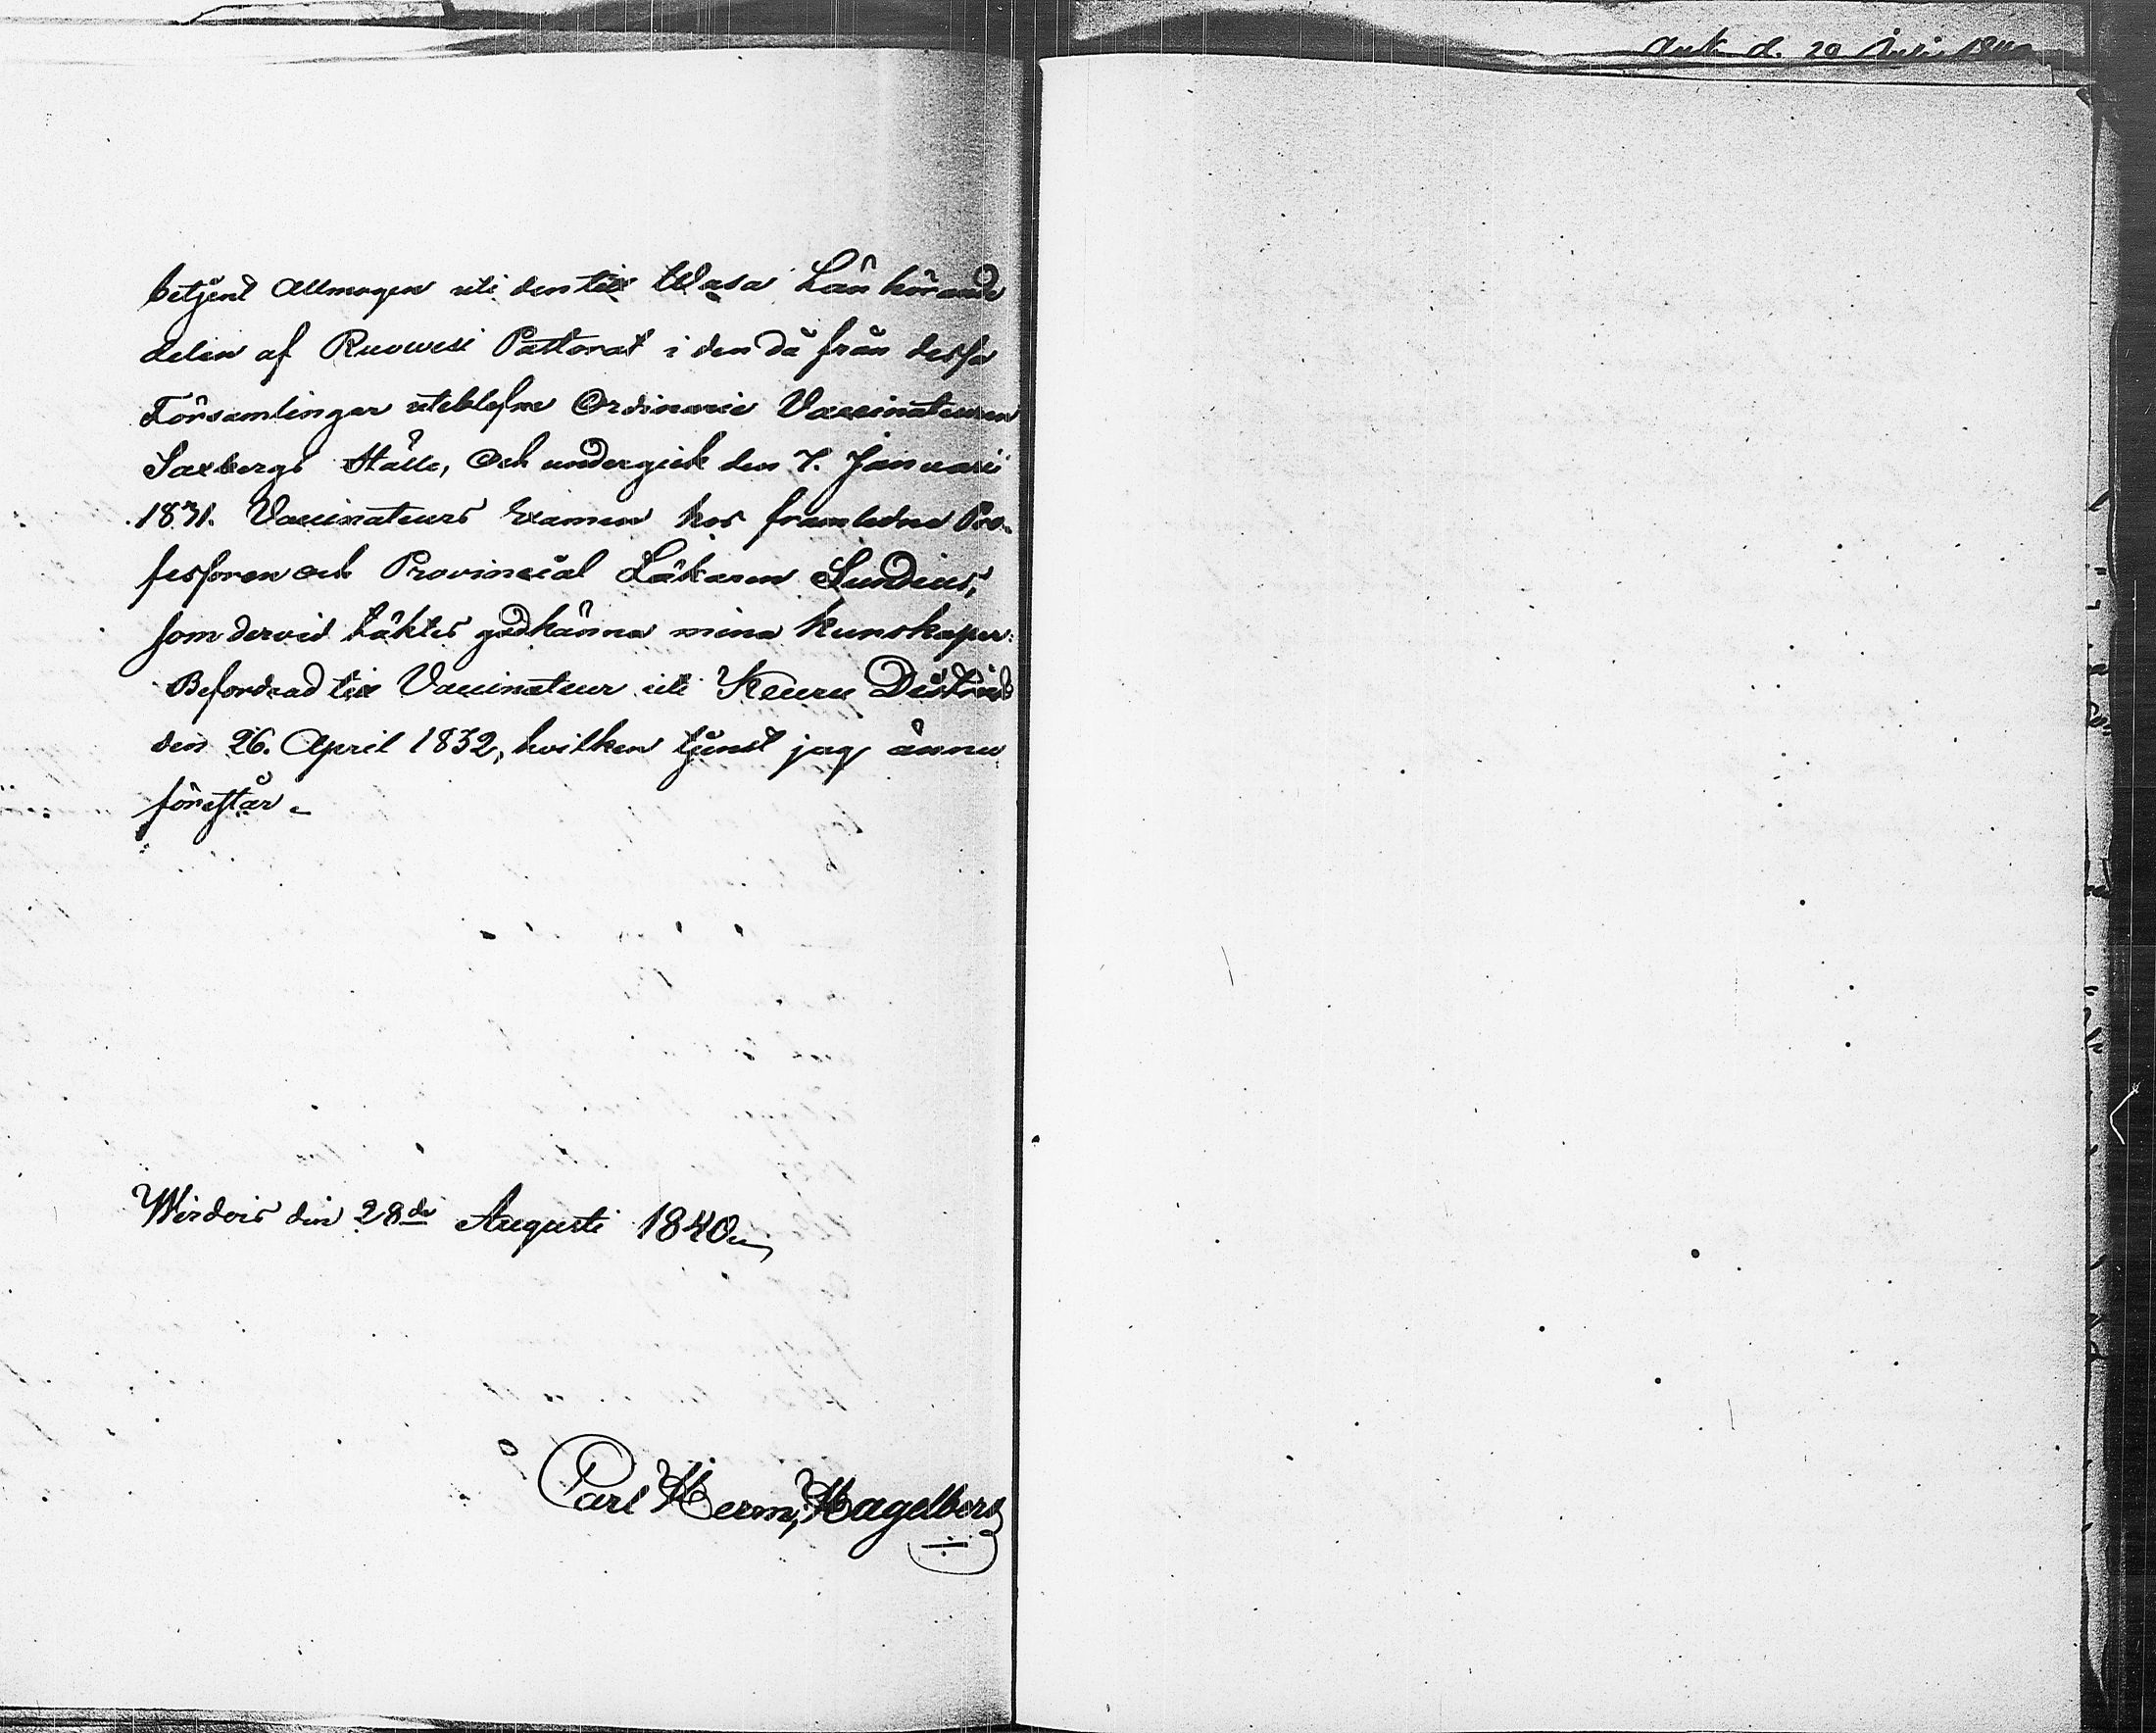 betjent Allmogen uti den till Wasa Län hörande
delen af Ruowesi Pastorat i den då från dessa
Församlingar uteblefne Ordinarie Vaccinateuren
Saxbergs Ställe, Och undergick den 7. Januarii
1831. Vaccinateurs Examen hos framledne Pro-
fessoren och Provincial Läkaren Lundius,
som dervid täktes godkänna mina Kunskaper.
Befordrad till Vaccinateur uti Keuru District
den 26. April 1832, hvilken tjenst jag ännu
förestår.
Wirdois den 28de Augusti 1840
Carl Herm, Hagelberg
d. 20 Juli 1840